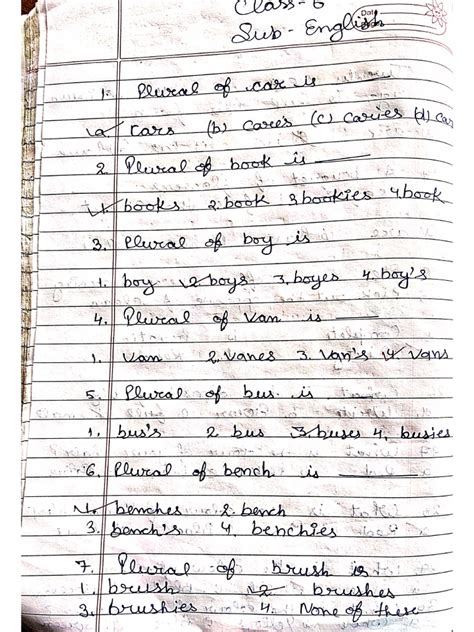 Class-6
Sub- English
1. Plural of car is
a. Cars (b) Cares (c) Caries (d) Car
2. Plural of book is ___
1. books 2. book 3 bookies 4 book
3. Plural of boy is
1. boy 2 boys 3. boyes 4. boy's
4. Plural of van is ___
1. Van 2. Vanes 3. Van's 4 Vans
5. Plural of bus is ___
1. bus's 2 bus 3. buses 4. busies
6. Plural of bench is ___
1. benches 2. bench
3. bench's 4. benchies
7. Plural of brush is
1. brush 2 brushes
3. brushies 4. None of these